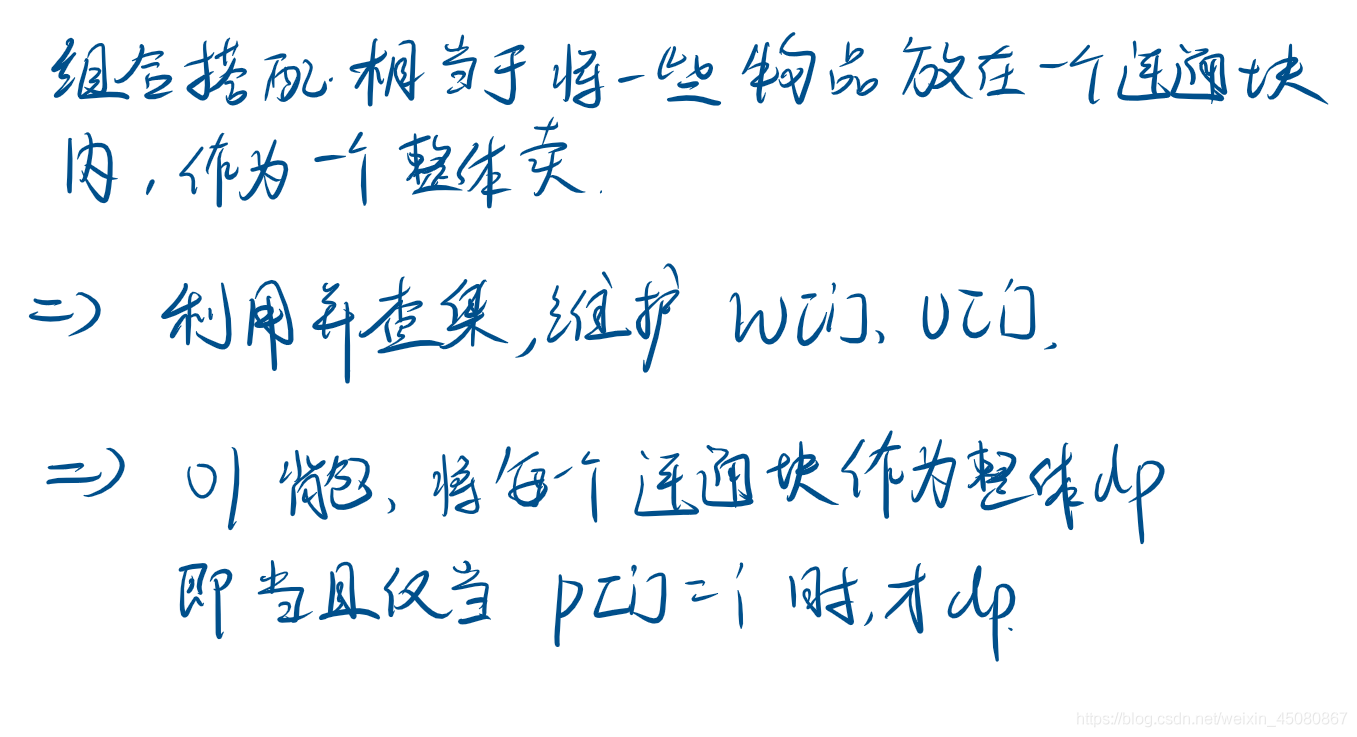 组合搭配.相当于将一些物品放在一个连通块
内,作为一个整体卖.
=> 利用并查集,维护 w[i]、v[i].
=> 01背包、将每个连通块作为整体dp
即当且仅当 p[i]=i 时,才dp.
https://blog.csdn.net/weixin_45080867